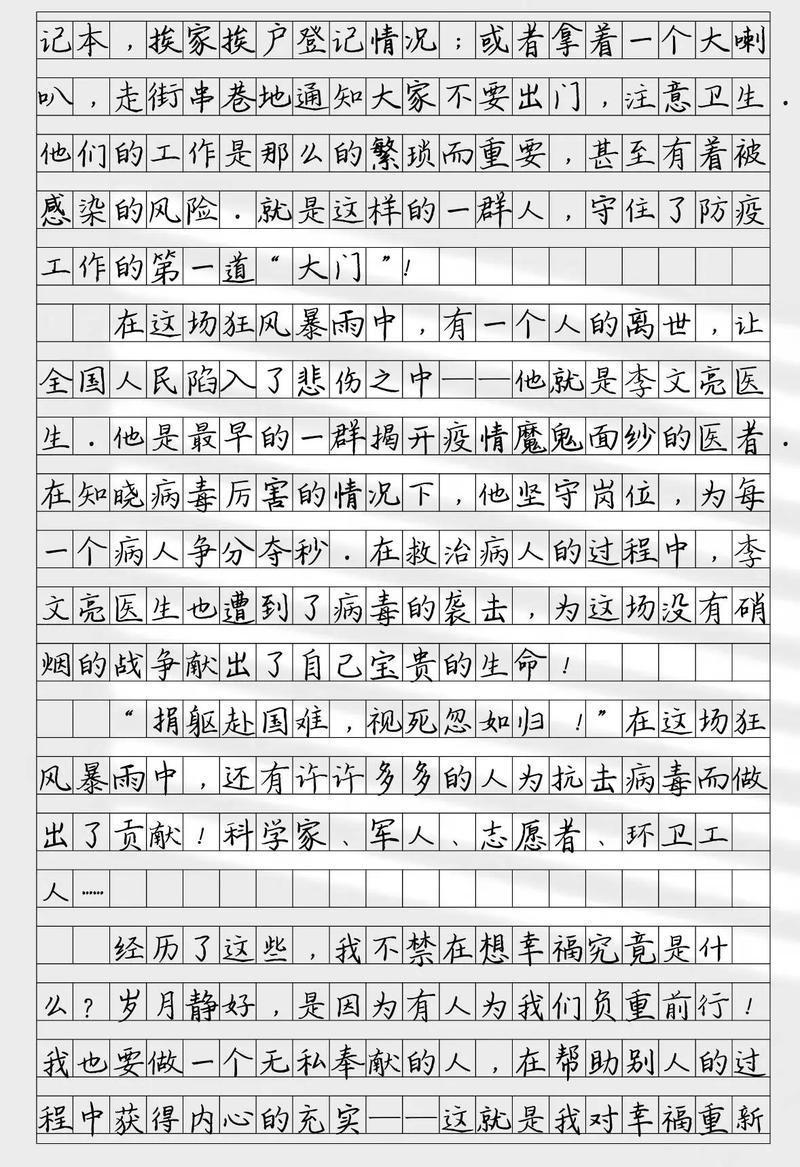 记本，挨家挨户登记情况；或者拿着一个大喇
叭，走街串巷地通知大家不要出门，注意卫生．
他们的工作是那么的繁琐而重要，甚至有着被
感染的风险．就是这样的一群人，守住了防疫
工作的第一道“大门”！
在这场狂风暴雨中，有一个人的离世，让
全国人民陷入了悲伤之中——他就是李文亮医
生．他是最早的一群揭开疫情魔鬼面纱的医者．
在知晓病毒厉害的情况下，他坚守岗位，为每
一个病人争分夺秒．在救治病人的过程中，李
文亮医生也遭到了病毒的袭击，为这场没有硝
烟的战争献出了自己宝贵的生命！
“捐躯赴国难，视死忽如归！”在这场狂
风暴雨中，还有许许多多的人为抗击病毒而做
出了贡献！科学家、军人、志愿者、环卫工
人……
经历了这些，我不禁在想幸福究竟是什
么？岁月静好，是因为有人为我们负重前行！
我也要做一个无私奉献的人，在帮助别人的过
程中获得内心的充实——这就是我对幸福重新